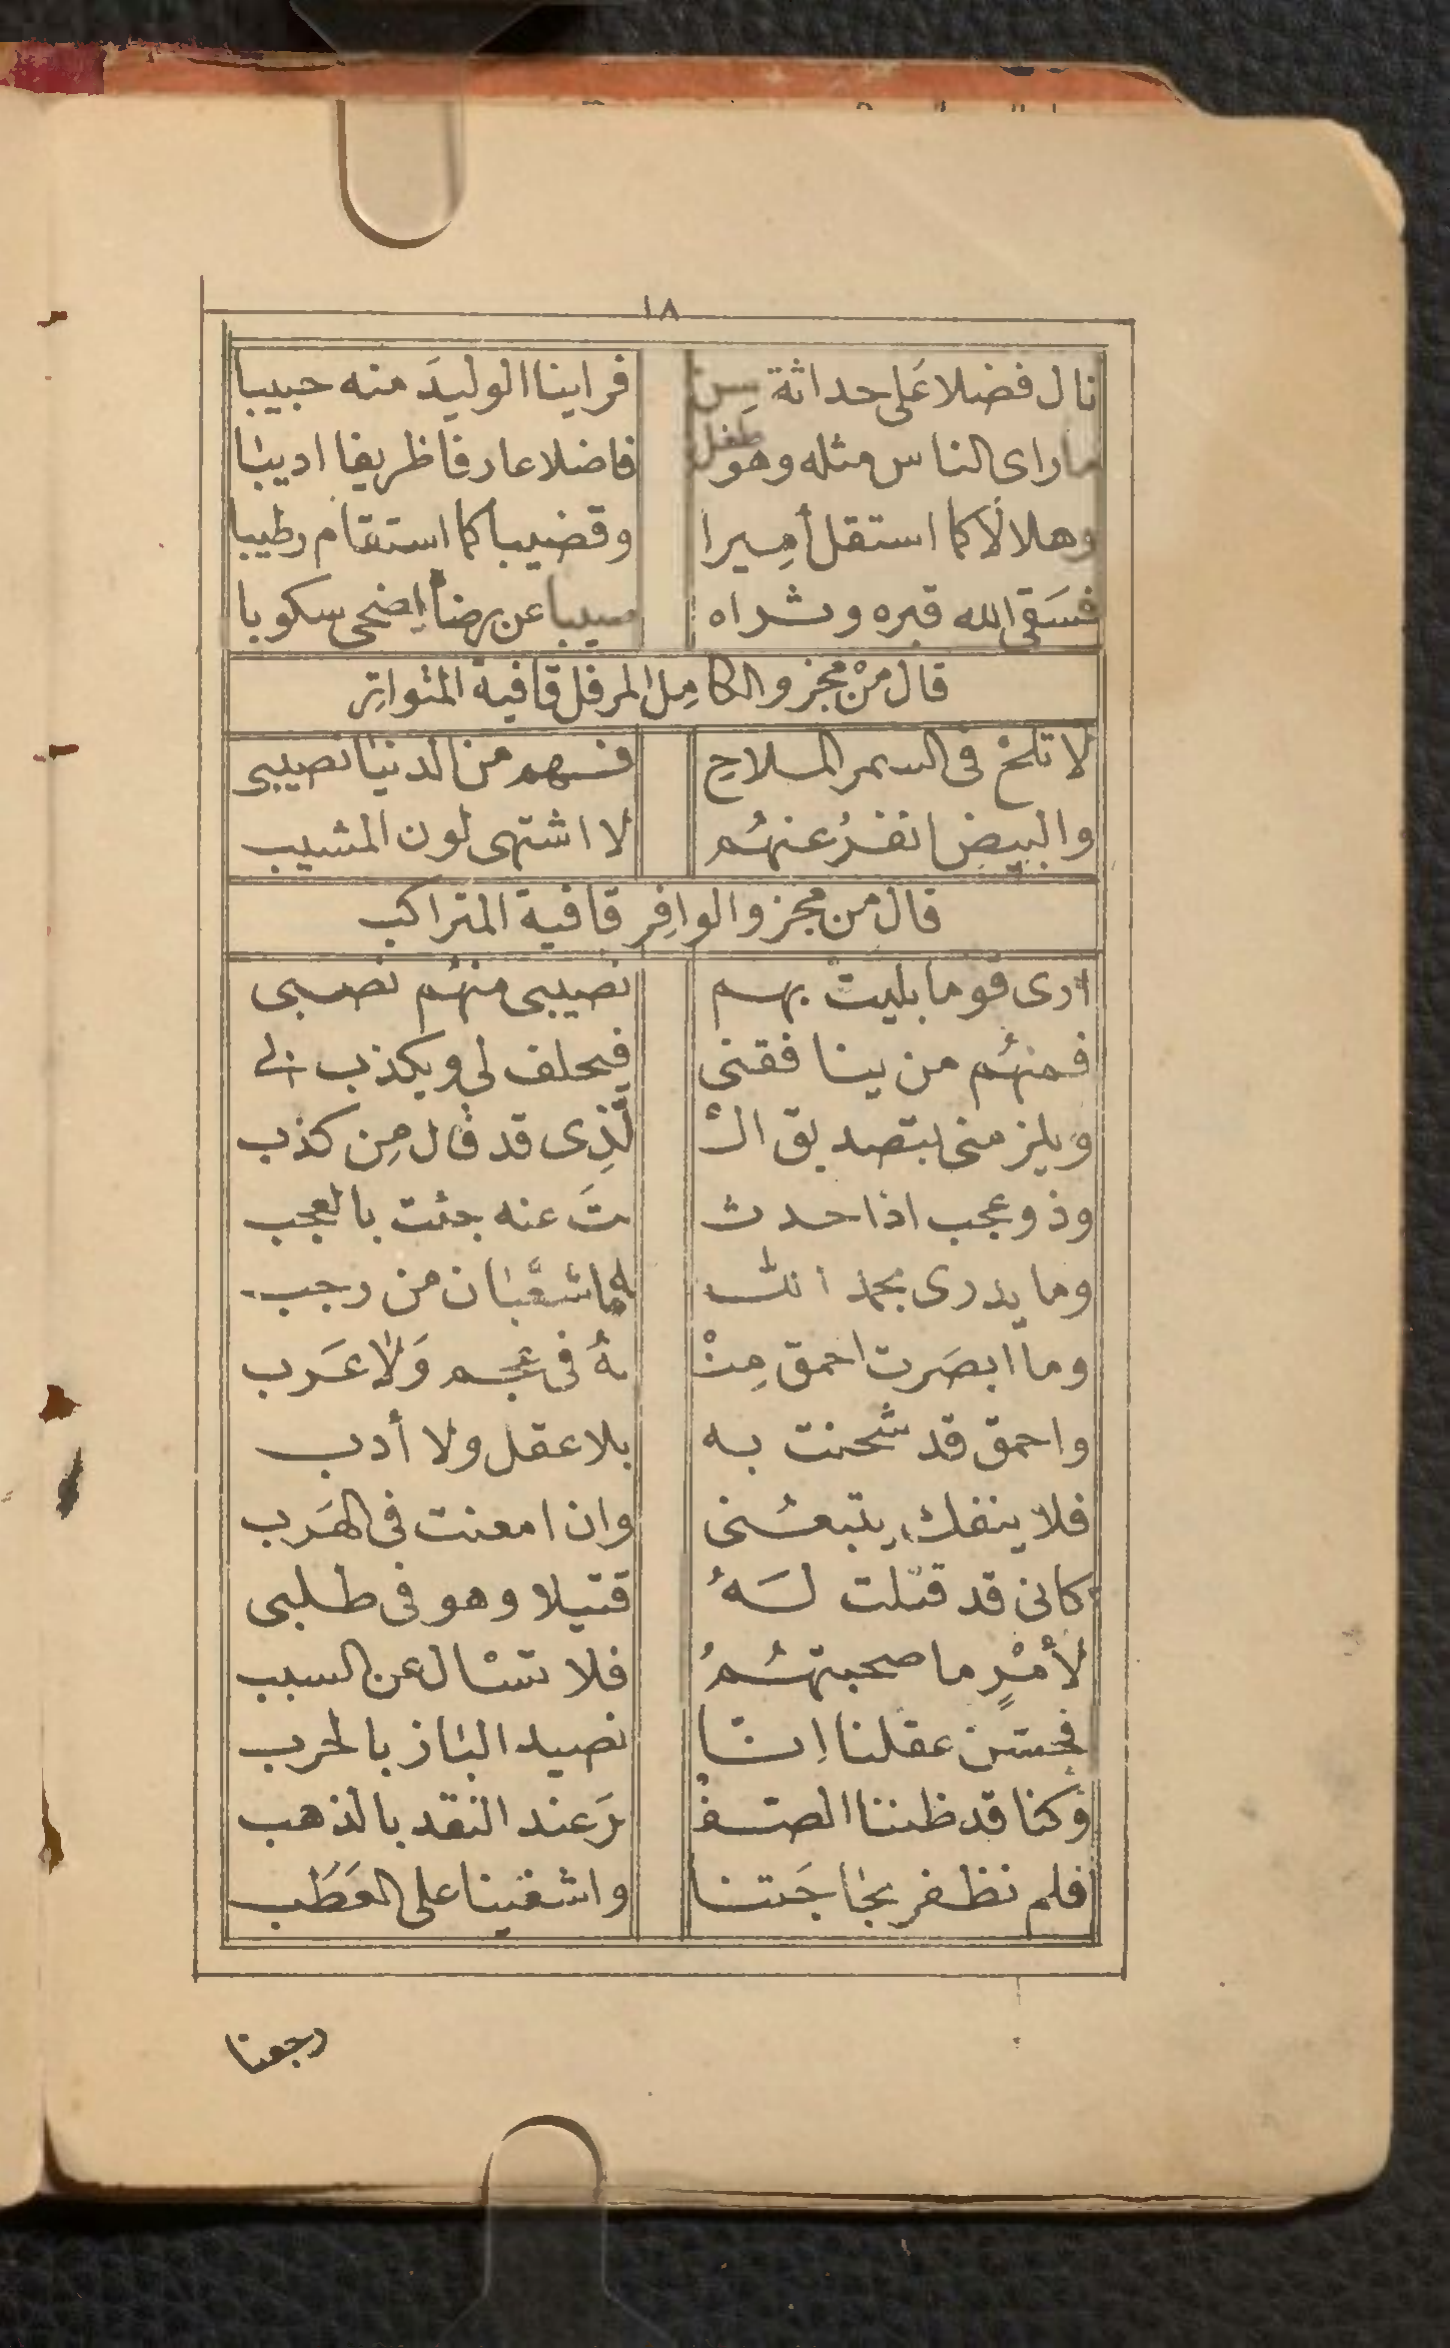 ١٨
نال فضلا عَلى حداثة سِن فراينا الوليدَ منه حبيبا
ما راى الناس مثله وهو طفل فاضلا عارفا ظريفا اديبا
وهلالا كما استقل أمِيرا وقضيبا كما استقام رطيبا
فسَقى الله قبره وثراه عن اضحى سكوبا
قال مِنْ مجزو الكامِل المرفل قافية المتواتِر
لا تلحَ فى السمر الملاحِ فهم من الدنيا نصيبى
والبيض انفرُ عنهُم لا اشتهى لون المشيب
قال من مجزو الوافِر قافية المتراكب
ارى قوما بليت بهم نصيبى منهُم نصبى
فمنهُم من ينافقنى فيحلف لى ويكذب لى
ويلزمنى بتصديق الْ لَّذِى قد قال مِن كذب
وذو عجب اذا حدث تَ عنه جئت بالعجب
وما يدرى بحمد الله ما شعْبان من رجب
وما ابصَرت احمق مِنْ هُ فى عجم وَلا عَرَب
واحمق قد شحنت به بلا عقل ولا أدب
فلا ينفك يتبعُنى وان امعنت فى الهَرب
كانى قد قتلت لَهُ قتيلا وهو فى طلبى
لأمْرٍ ما صحبتهُمُ فلا تسْال عن السبب
عقلنا اِنّا نصيد الباز بالخرب
وكنا قد ظننا الصّفْ رَ عند النقد بالذهب
فلم نظفر بحاجَتنا واشفينا على العَطَب
رجعنا